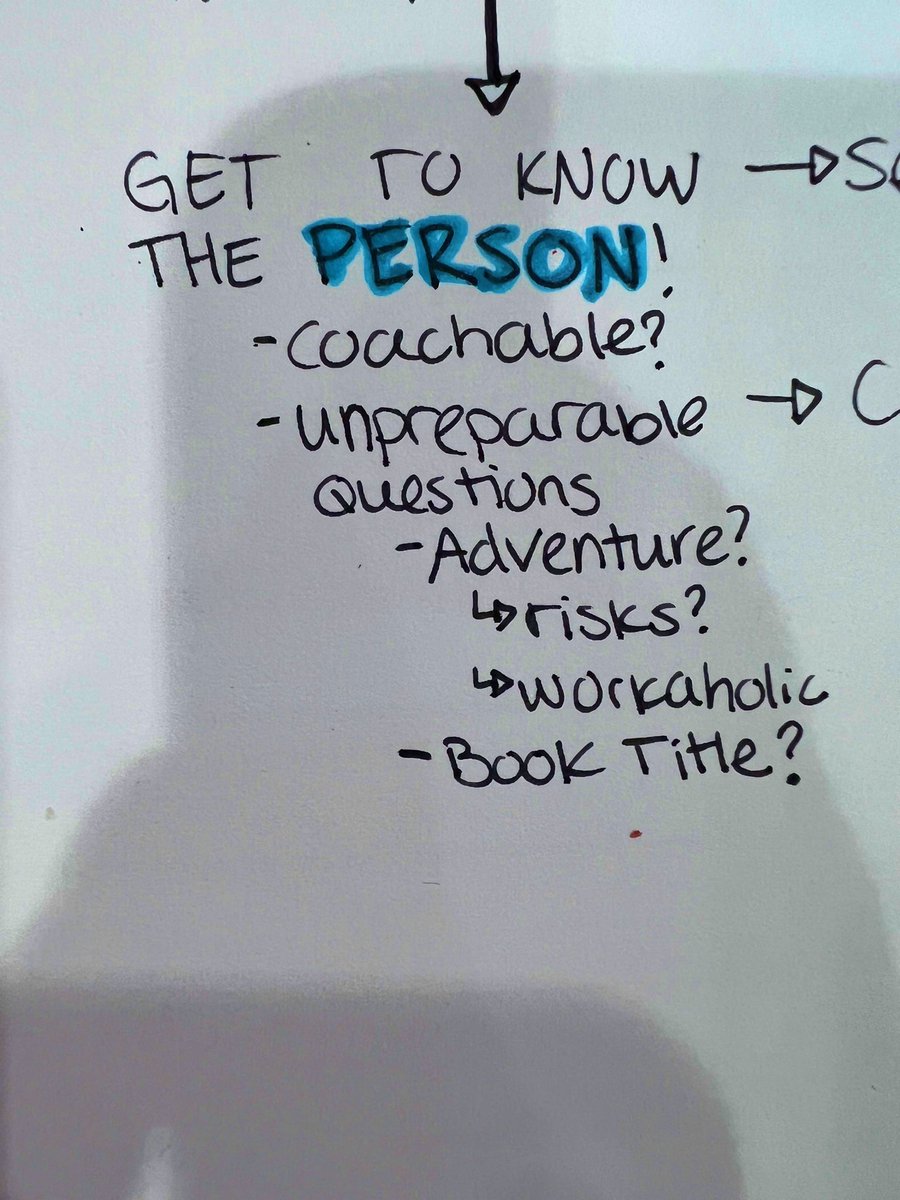 GET TO KNOW →
THE PERSON!
- coachable?
- unpreparable →
questions
- Adventure?
↳ risks?
↳ workaholic
- Book Title?